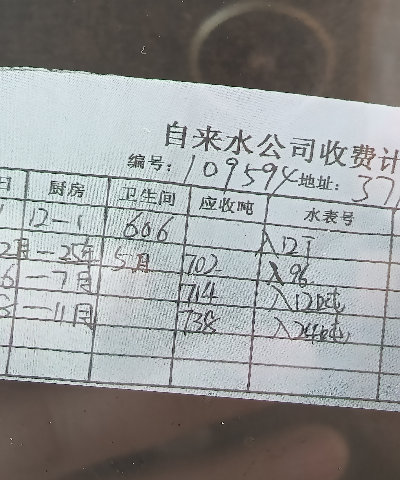 自来水公司收费计
编号: 109594 地址: 37
日 厨房 卫生间 应收吨 水表号
12-1 606 入12丁
2月-25年 5月 702 入96
6-7月 714 入12吨
8-11月 738 入24吨